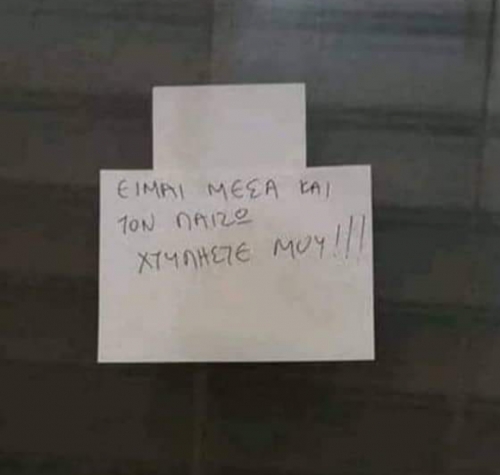 ΕΙΜΑΙ ΜΕΣΑ ΚΑΙ
ΤΟΝ ΠΑΙΖΩ
ΧΤΥΠΗΣΤΕ ΜΟΥ!!!